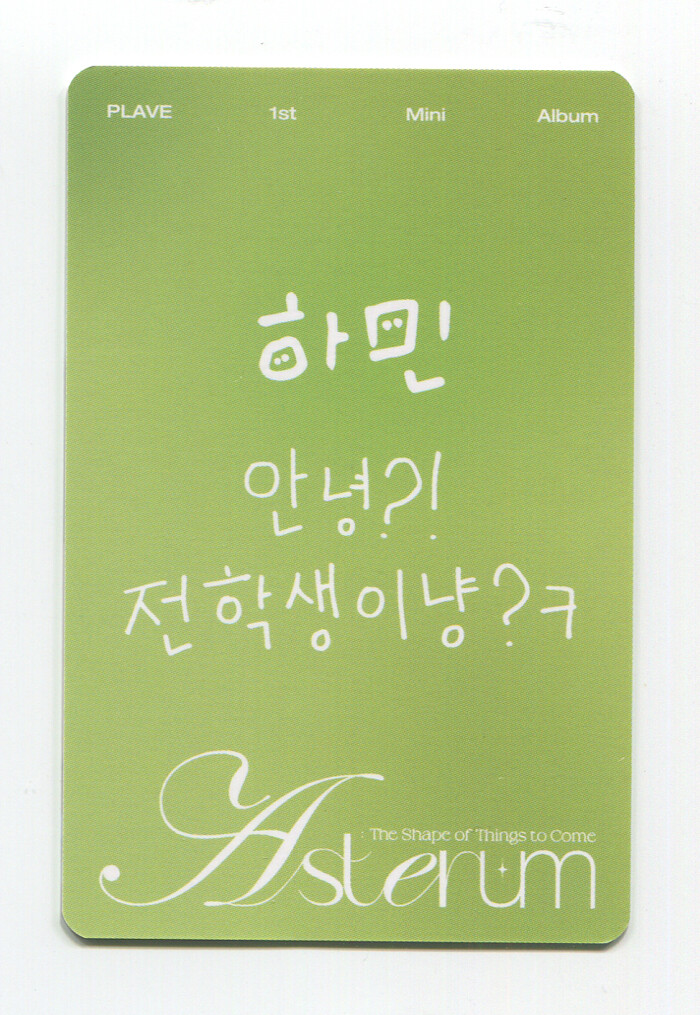 PLAVE 1st Mini Album
하민
안녕?!
전학생이냥?ㅋ
: The Shape of Things to Come
Asterum